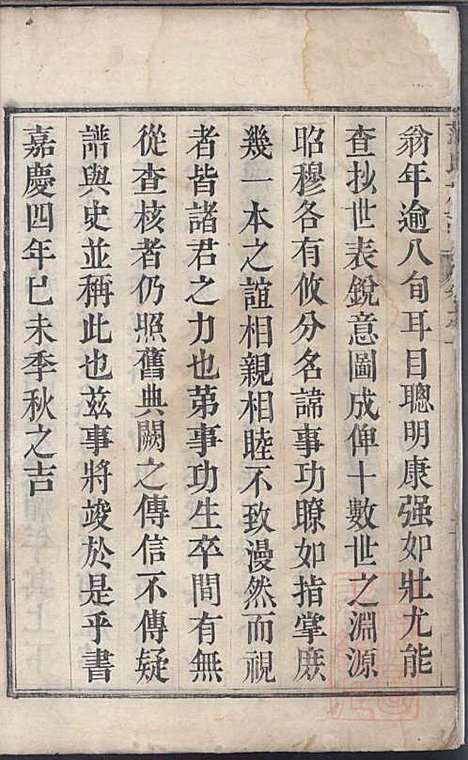 翁年逾八旬耳目聰明康强如壯尤能
查抄世表銳意圖成俾十數世之淵源
昭穆各有攸分名諦事功瞭如指掌庶
幾一本之誼相親相睦不致漫然而視
者皆諸君之力也苐事功生卒間有無
從查核者仍照舊典闕之傳信不傳疑
譜與史並稱此也茲事將竣於是乎書
嘉慶四年巳未季秋之吉